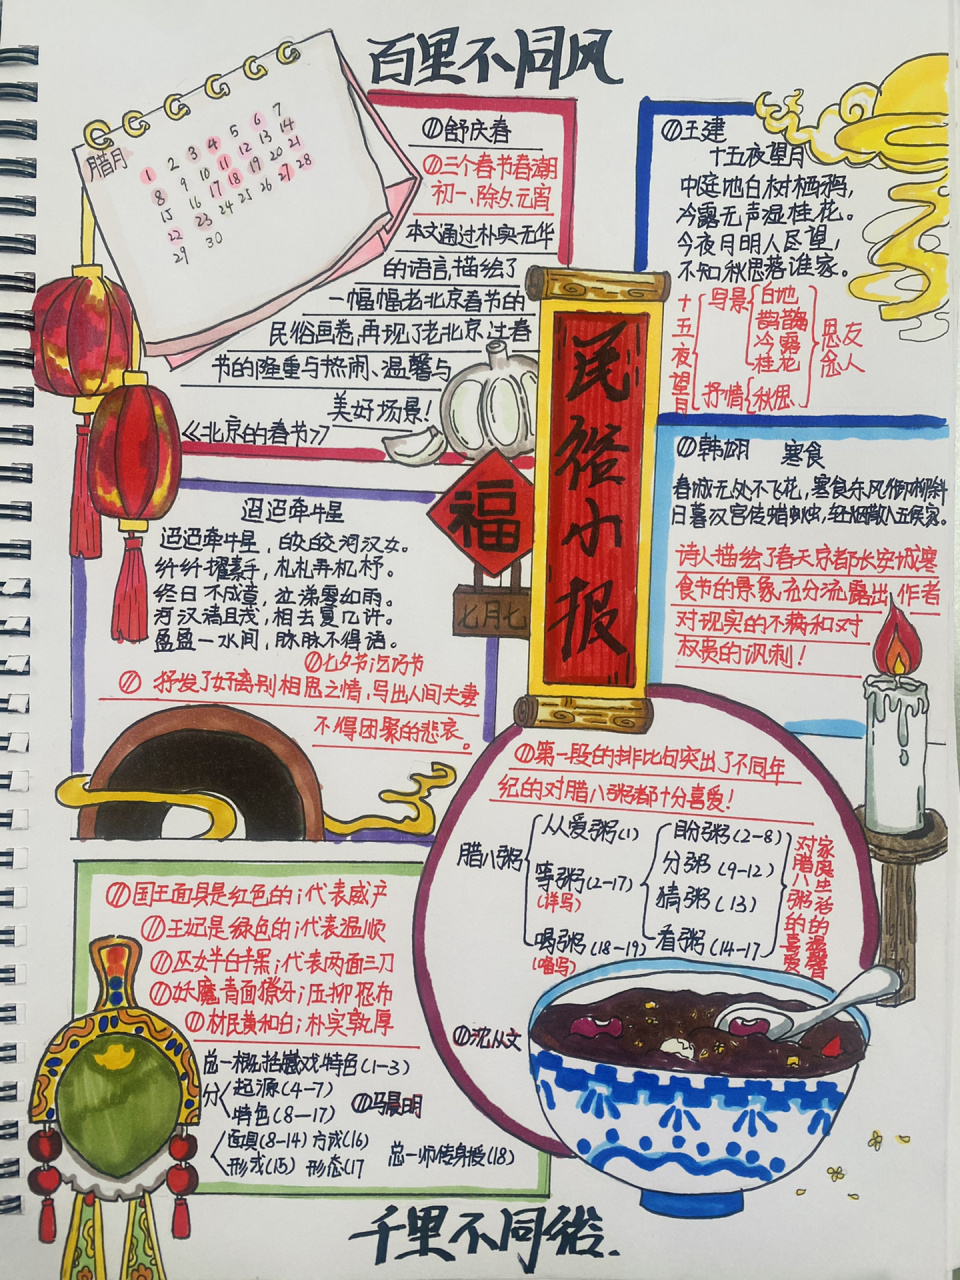 百里不同风
腊月
1 2 3 4 5 6 7
8 9 10 11 12 13 14
15 16 17 18 19 20 21
22 23 24 25 26 27 28
29 30
①舒庆春
①三个春节春潮
初一、除夕、元宵
本文通过朴实无华
的语言,描绘了
一幅幅老北京春节的
民俗画卷,再现了老北京过春
节的隆重与热闹、温馨与
美好场景!
《北京的春节》
①王建
十五夜望月
中庭地白树栖鸦,
冷露无声湿桂花。
今夜月明人尽望,
不知秋思落谁家。
十五夜望月
写景
白地
鹊鸦
冷露
桂花
抒情
秋思
思友
念人
民俗小报
福
七月七
①韩翃 寒食
春城无处不飞花,寒食东风御柳斜
日暮汉宫传蜡烛,轻烟散入五侯家。
诗人描绘了春天京都长安城寒
食节的景象,充分流露出作者
对现实的不满和对
权贵的讽刺!
迢迢牵牛星
迢迢牵牛星,皎皎河汉女。
纤纤擢素手,札札弄机杼。
终日不成章,泣涕零如雨。
河汉清且浅,相去复几许。
盈盈一水间,脉脉不得语。
①七夕节;乞巧节
① 抒发了好离别相思之情,写出人间夫妻
不得团聚的悲哀。
①第一段的排比句突出了不同年
纪的对腊八粥都十分喜爱!
腊八粥
从爱粥(1)
等粥(2-17)
(详写)
喝粥(18-19)
(略写)
盼粥(2-8)
分粥(9-12)
猜粥(13)
看粥(14-17
对腊八粥的喜爱
家庭生活的温馨
①沈从文
①国王面具是红色的;代表威严
①王妃是绿色的;代表温顺
①巫女半白半黑;代表两面三刀
①妖魔青面獠牙;压抑恐怖
①村民黄和白;朴实敦厚
总一概括藏戏特色(1-3)
分
起源(4-7)
特色(8-17) ①马晨明
面具(8-14) 方式(16)
形成(15) 形态(17
总一师传身授(18)
千里不同俗.